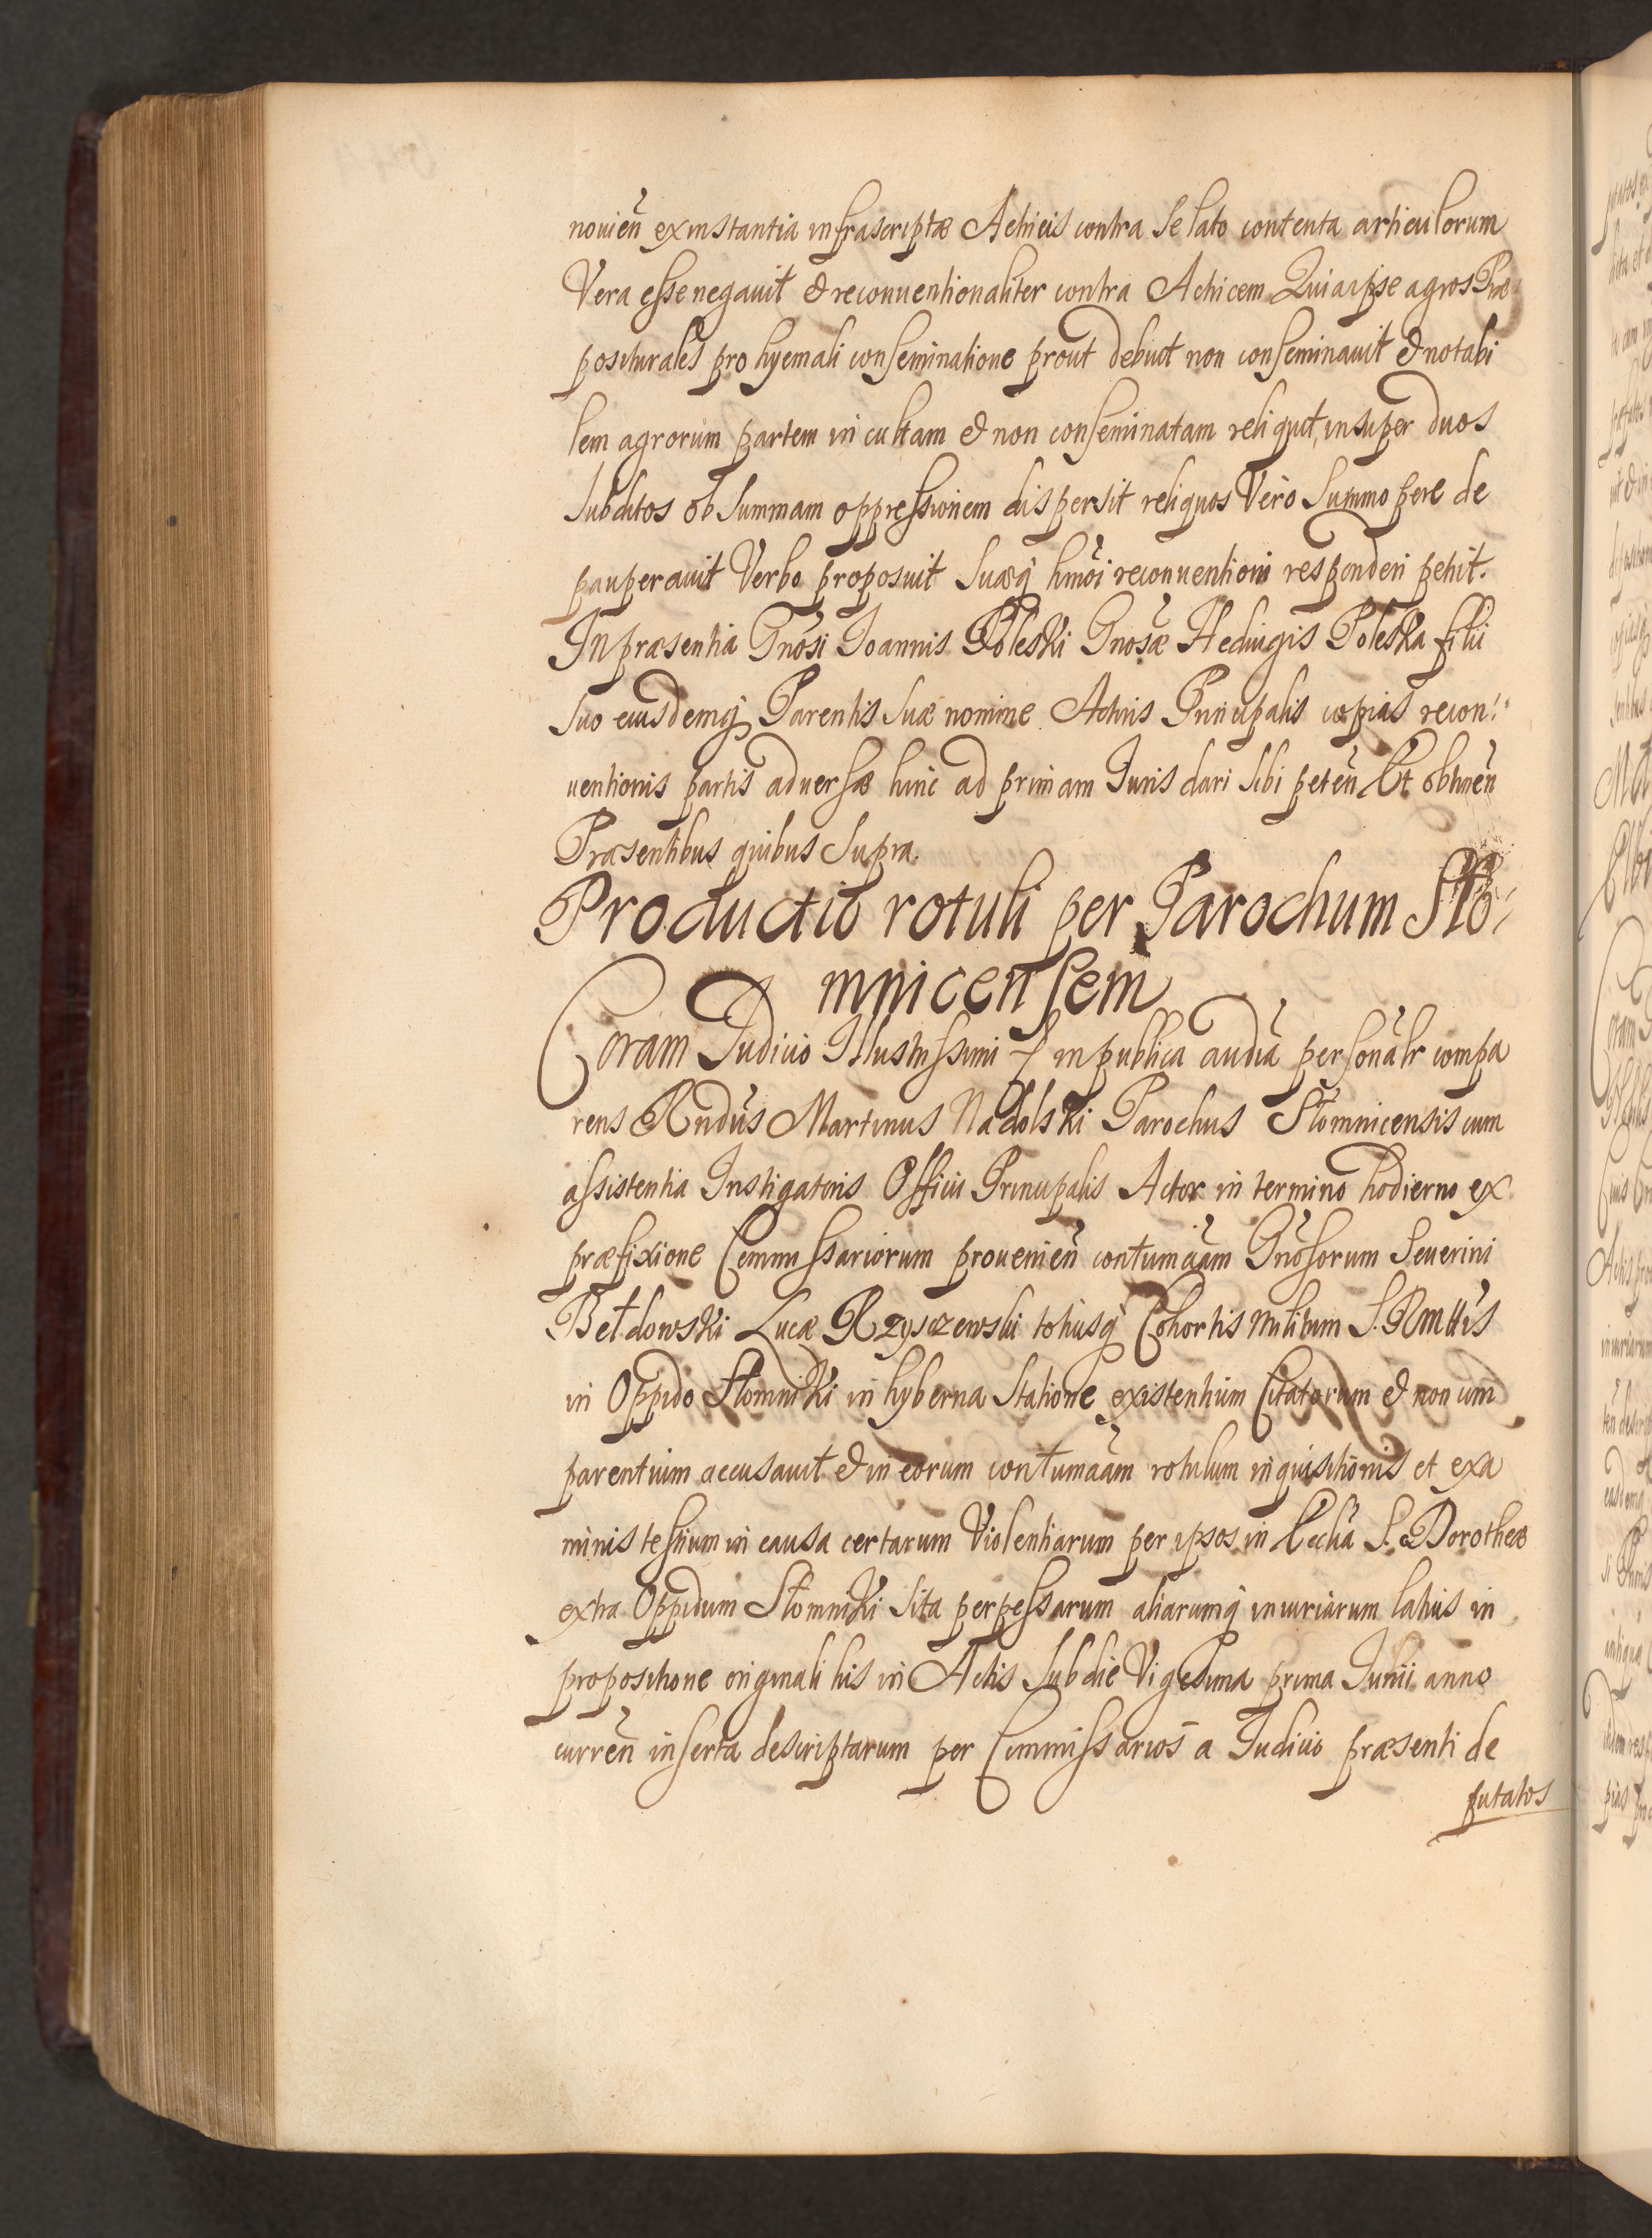 nouien̄ ex instantia infrascriptæ Actricis contra se lato contenta articulorum
Vera esse negauit & reconuentionaliter contra Actricem Quia ipse agros Præ
positurales pro hyemali conseminatione prout debuit non conseminauit & notabi
lem agrorum partem in cultam & non conseminatam reliquit, insuper duos
subditos ob summam oppressionem dispersit reliquos Vero summopere de
pauperauit Verbo proposuit suæq̨ hmōi reconuentioni responderi petit.
In præsentia Gnōsi Joannis Poleski Gnosæ Hediugis Poleska filii
suo eiusdemq̨ Parentis suæ nomine Actricis Principalis copias recon:
uentionis partis aduersæ hinc ad primam Juris dari sibi peteñ Et obtineñ
Præsentibus quibus supra.
Productio rotuli per Parochum Sło:
mnicensem
Coram Judicio Illustrissimi & in publica audiā personāłr compa
rens Rndūs Martinus Nadolski Parochus Słomnicensis cum
assistentia Instigatoris Officii Principalis Actor in termino hodierno ex
præfixione Commissariorum prouenieñ contumaām Gnōsorum Seuerini
Bełdowski Lucæ Rzysczewski totiusq̨ Cohortis militum S. R. Mttis
in Oppido Słomniki in hyberna statione existentium Citatorum & non com
parentium accusauit & in eorum contumaām rotulum inquisitionis et exa
minis testium in causa certarum Violentiarum per ipsos in Eccliā S. Dorotheæ
extra Oppidum Słomniki sita perpessarum aliarumq̨ iniuriarum latius in
propositione originali his in Actis sub die Vigesima prima Junii anno
curreñ inserta descriptarum per Commissarios a Judicio præsenti de
putatos